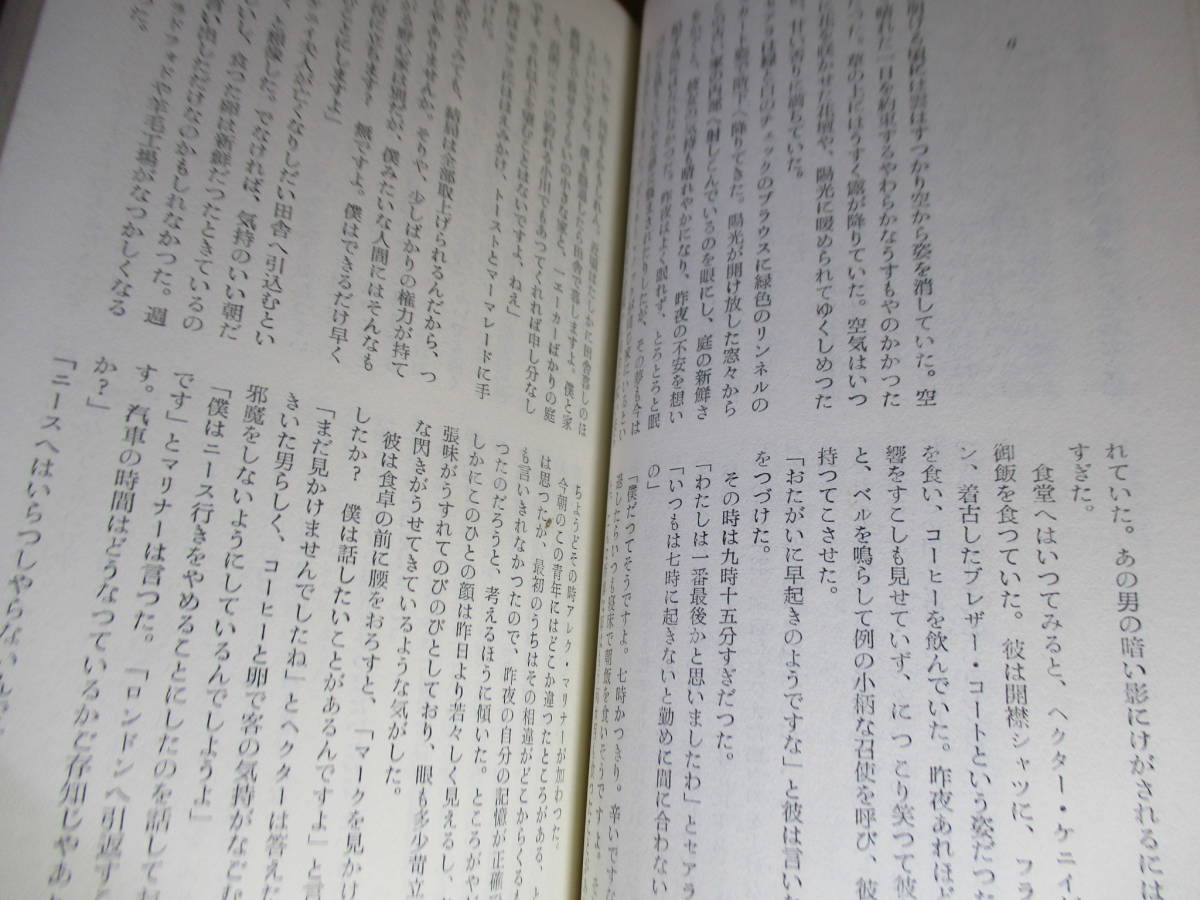 6
明ける頃には雲はすつかり空から姿を消していた。空
晴れた一日を約束するやわらかなうすもやのかかつた
つた。草の上にはうすく露が降りていた。空気はいつ
花を咲かせた花壇や、陽光に暖められてゆくしめつた
甘い香りに満ちていた。
ラは緑と白のチェックのブラウスに緑色のリンネルの
カート姿で階下へ降りてきた。陽光が開け放した窓々から
古い家の内部へ射しこんでいるのを眼にし、庭の新鮮さ
気持も晴れやかになり、昨夜の不安を想い
昨夜はよく眠れず、とろとろと眠
れていた。あの男の暗い影にけがされるには
すぎた。
食堂へはいつてみると、ヘクター・ケニイ
御飯を食つていた。彼は開襟シャツに、フラ
ン、着古したブレザー・コートという姿だつた
を食い、コーヒーを飲んでいた。昨夜あれほど
響をすこしも見せていず、にっこり笑つて彼
と、ベルを鳴らして例の小柄な召使を呼び、彼
持つてこさせた。
「おたがいに早起きのようですな」と彼は言いな
をつづけた。
その時は九時十五分すぎだつた。
「わたしは一番最後かと思いましたわ」とセアラ
「いつもは七時に起きないと勤めに間に合わない
の」
「僕だつてそうですよ。七時かつきり。辛いですな
田舎で暮しますよ。僕と家
小さな家と、一エーカーばかりの庭
釣れる小川でもあつてくれれば申し分なし
です。それ以上を望むことはないですよ、ねえ」
彼はセアラにほほえみかけ、トーストとマーマレードに手
結局は全部取上げられるんだから、つ
じやありませんか。そりや、少しばかりの権力が持て
野心家は別だが、僕みたいな人間にはそんなも
になります? 無ですよ。僕はできるだけ早く
ことにしますよ」
ケニイ夫人が亡くなりしだい田舎へ引込むとい
と想像した。でなければ、気持のいい朝だ
いし、食つた卵は新鮮だつたときているの
言い出しただけなのかもしれなかつた。週
ラッドフォドや羊毛工場がなつかしくなる
ちようどその時アレク・マリナーが加わつた。
今朝のこの青年にはどこか違つたところがある、と
は思つたが、最初のうちはその相違がどこからくる
も言いきれなかつたので、昨夜の自分の記憶が正確
つたのだろうと、考えるほうに傾いた。ところがや
しかにこのひとの顔は昨日より若々しく見えるし、
張味がうすれてのびのびとしており、眼も多少苛立
な閃きがうせてきているような気がした。
彼は食卓の前に腰をおろすと、「マークを見かけ
したか? 僕は話したいことがあるんですよ」と言
「まだ見かけませんでしたね」とヘクターは答えた
きいた男らしく、コーヒーと卵で客の気持がなごむ
邪魔をしないようにしているんでしようよ」
「僕はニース行きをやめることにしたのを話してお
です」とマリナーは言つた。「ロンドンへ引返する
す。汽車の時間はどうなつているかご存知じやあ
か?」
「ニースへはいらつしやらないんで